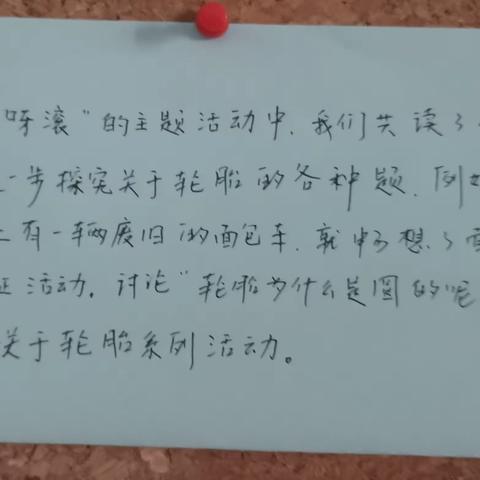 呀滚”的主题活动中、我们共读了
一步探究关于轮胎的各种题、例如
有一辆废旧的面包车、就中了想了
活动。讨论“轮胎为什么是圆的呢
关于轮胎系列活动。